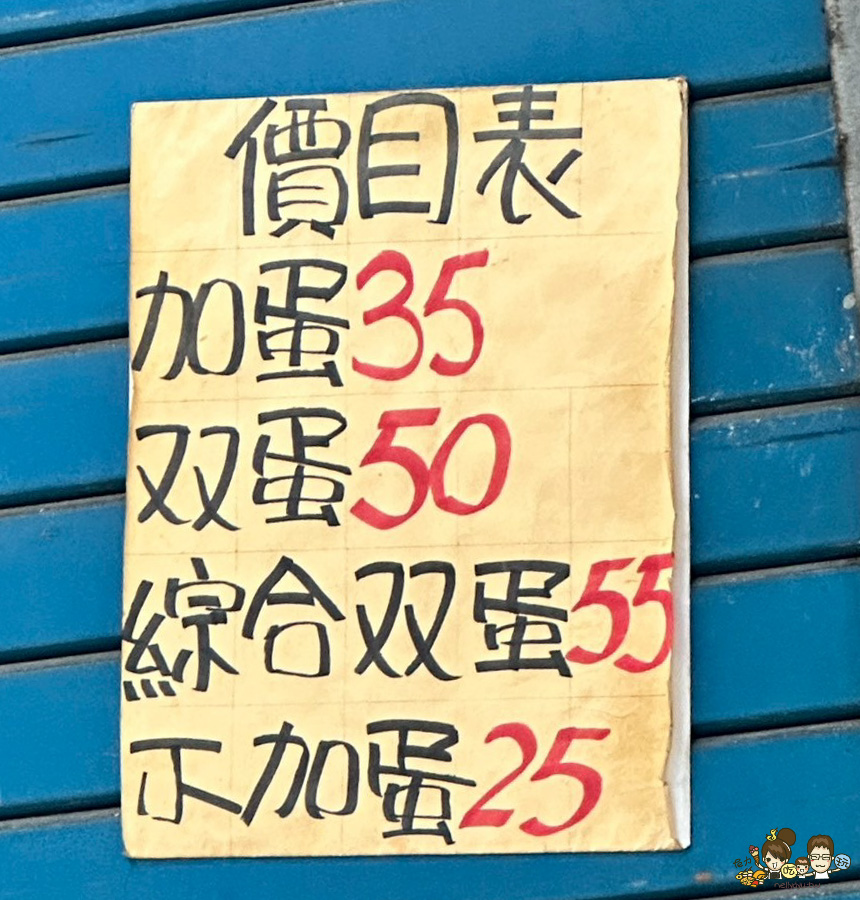 價目表
加蛋35
双蛋50
綜合双蛋55
不加蛋25